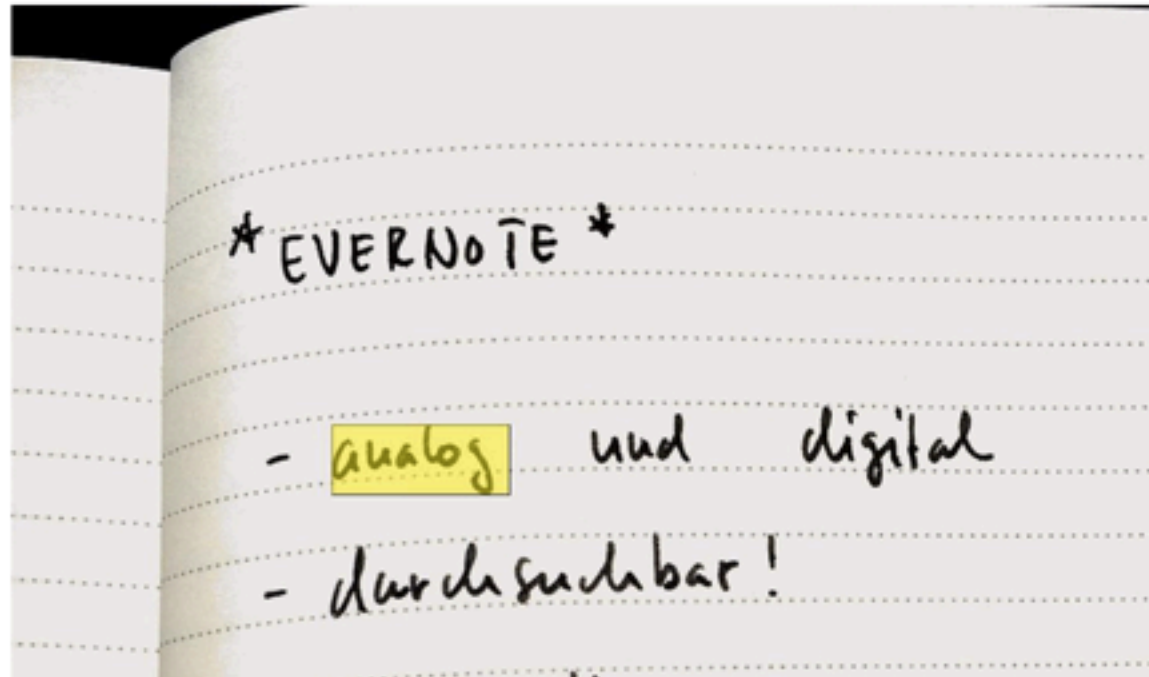 * EVERNOTE *
- analog und digital
- durchsuchbar!